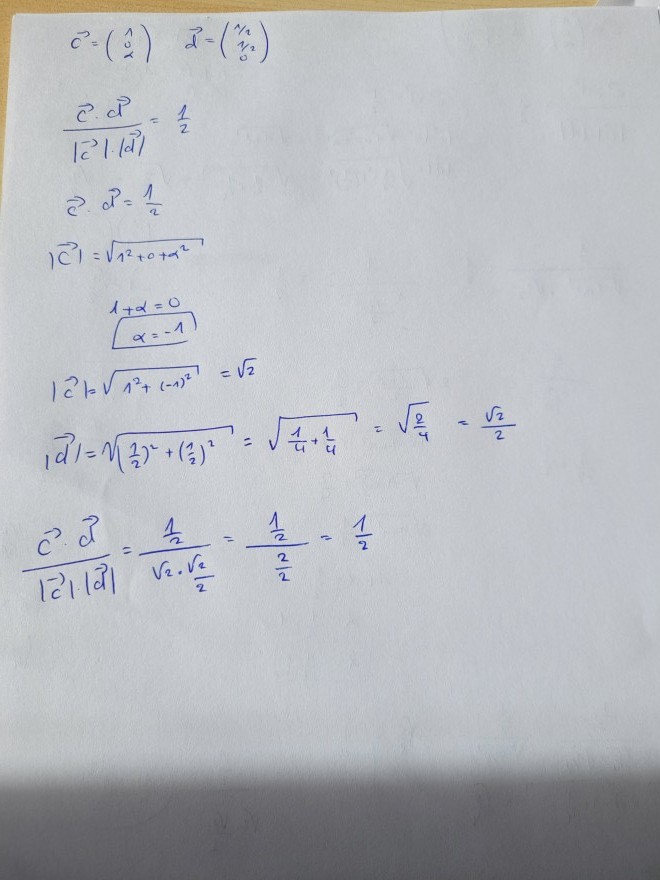 c⃗ = (1 0 α) d⃗ = (1/2 1/2 0)
c⃗ · d⃗ / |c⃗| · |d⃗| = 1/2
c⃗ · d⃗ = 1/2
|c⃗| = √(1² + 0 + α²)
1 + α = 0
α = -1
|c⃗| = √(1² + (-1)²) = √2
|d⃗| = √((1/2)² + (1/2)²) = √(1/4 + 1/4) = √(2/4) = √2/2
c⃗ · d⃗ / |c⃗| · |d⃗| = (1/2)/(√2 · √2/2) = (1/2)/(2/2) = 1/2